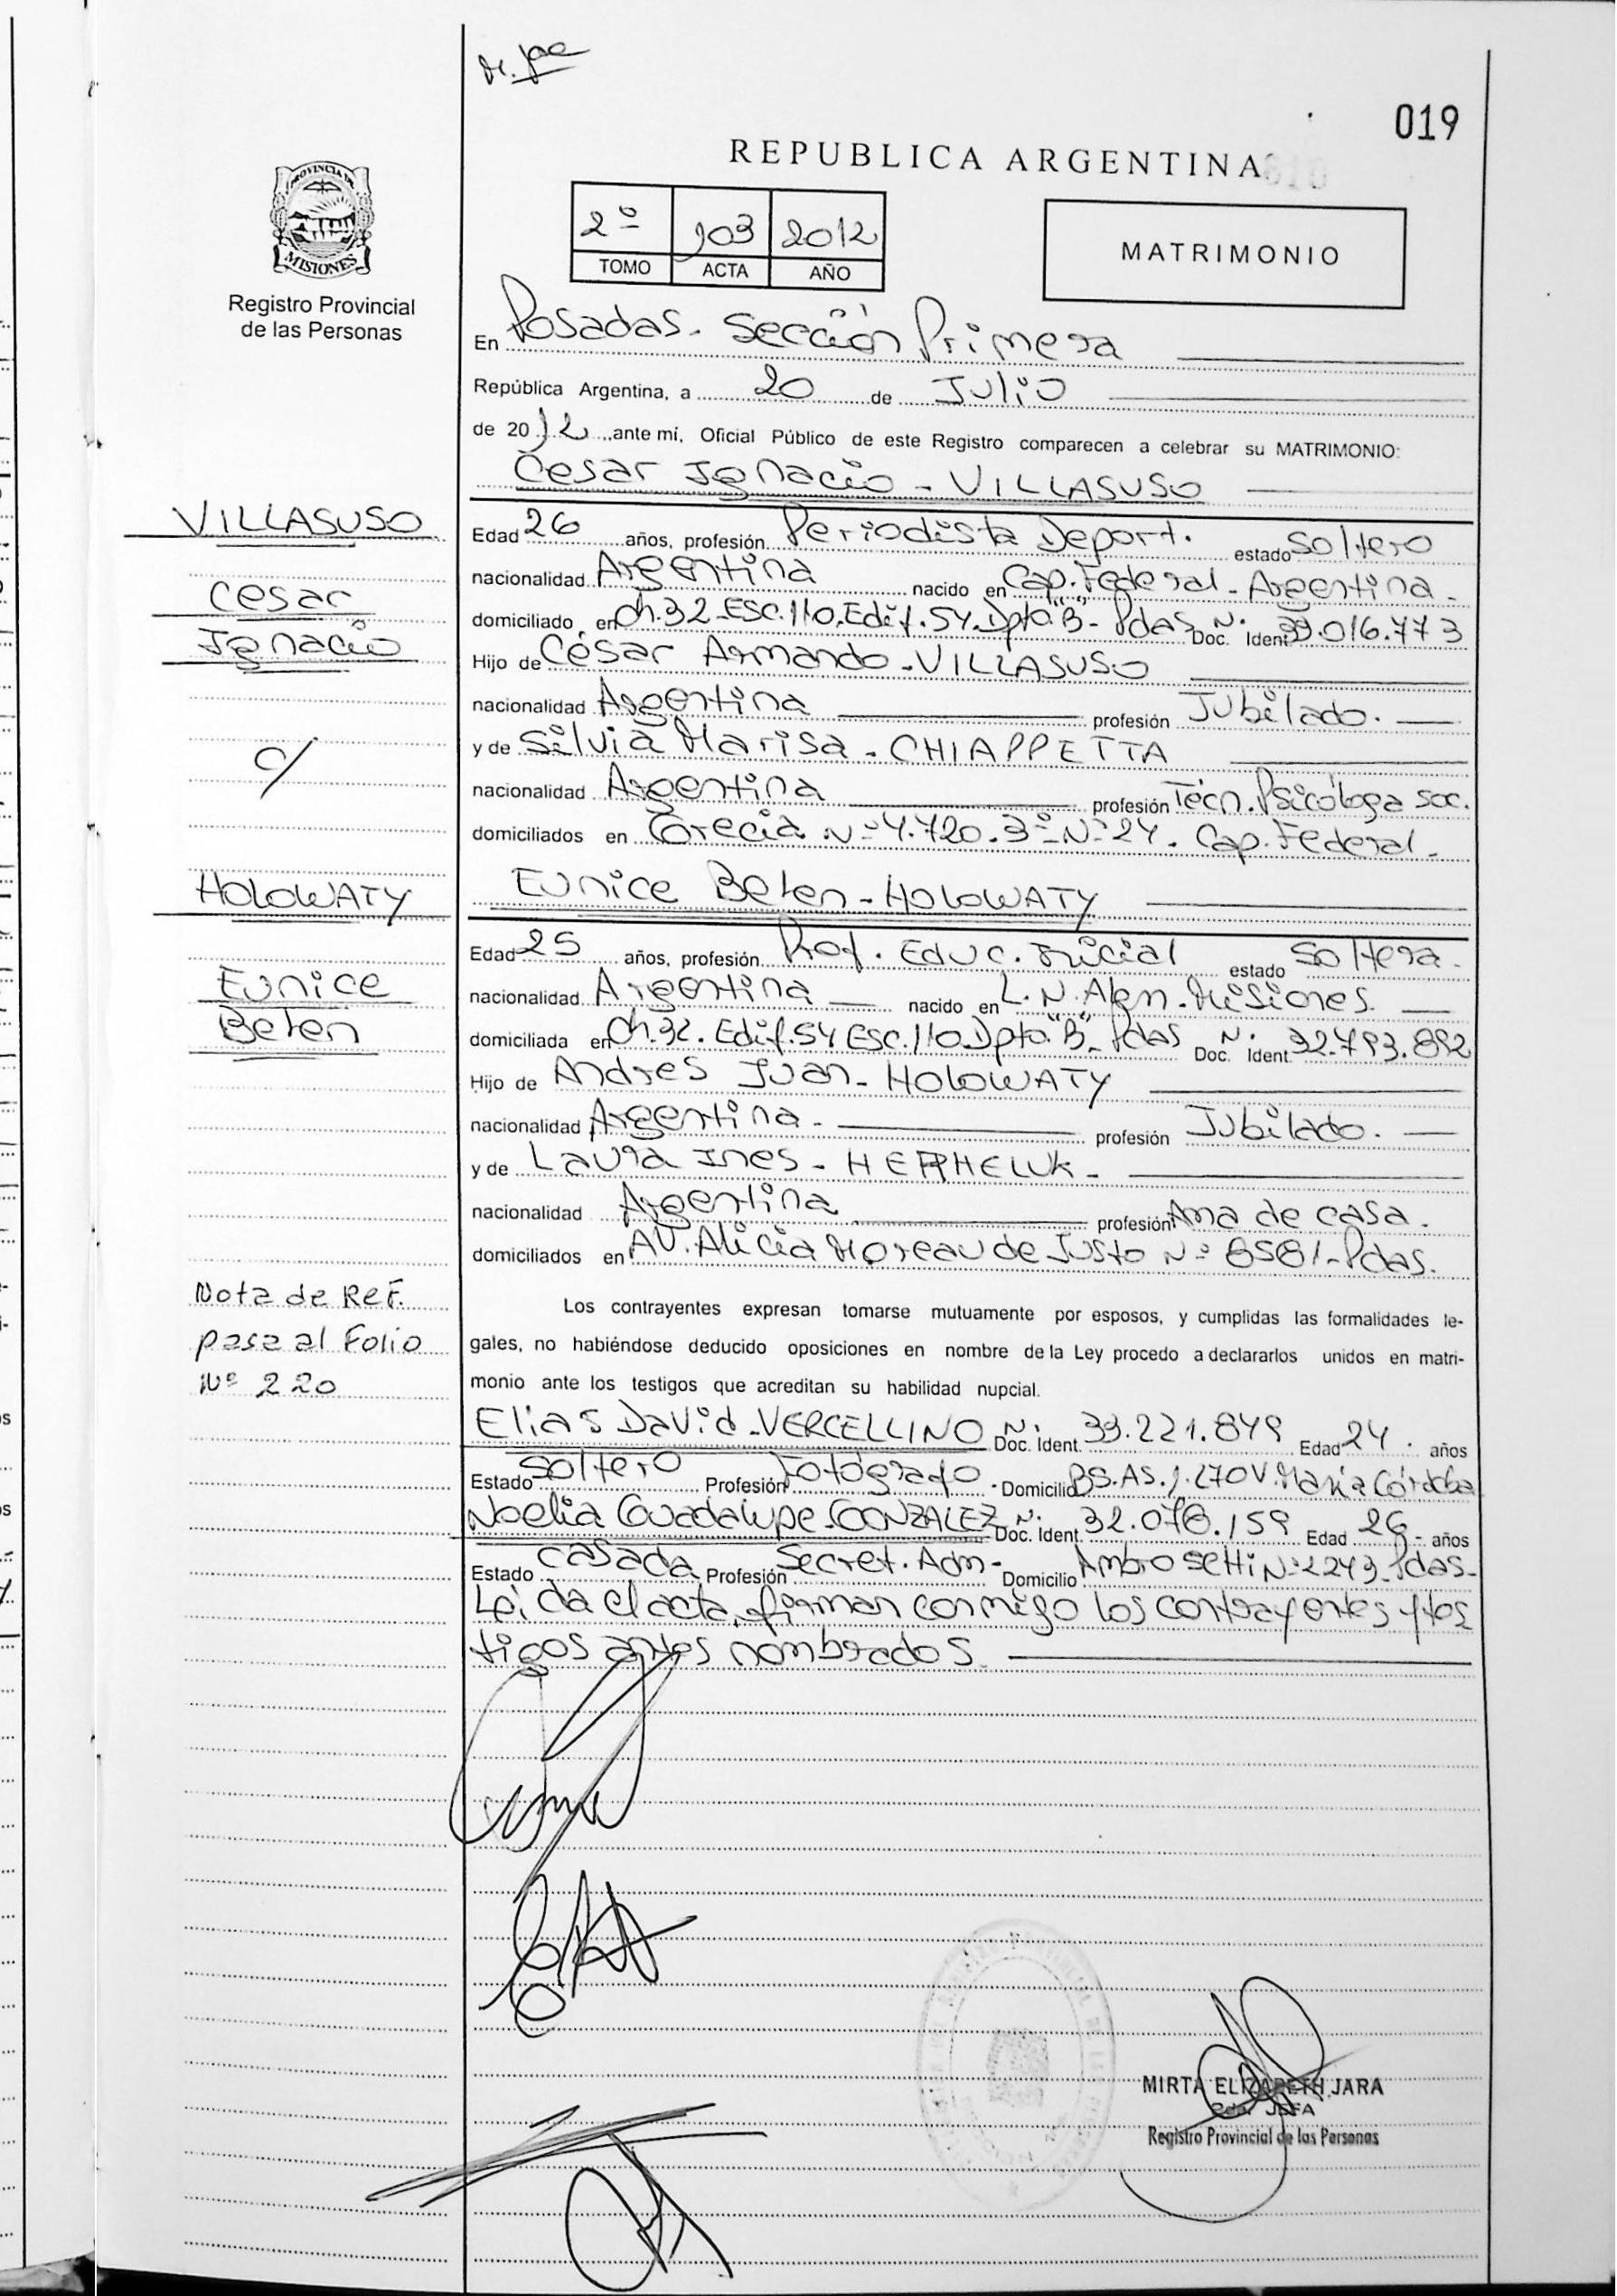 019
REPUBLICA ARGENTINA
PROVINCIA DE
MISIONES
Registro Provincial
de las Personas
2º 103 2012
TOMO ACTA AÑO
MATRIMONIO
En Posadas - Sección Primera
República Argentina, a 20 de Julio
de 2012 ante mí, Oficial Público de este Registro comparecen a celebrar su MATRIMONIO:
Cesar Ignacio - VILLASUSO
VILLASUSO
Cesar
Ignacio
c/
HOLOWATY
Eunice
Belen
Edad 26 años, profesión Periodista Deport. estado Soltero
nacionalidad Argentina nacido en Cap. Federal - Argentina -
domiciliado en Ch. 32 - Esc. 110. Edif. 54. Dpto "B" - Pdas Doc. Ident. Nº .016.773
Hijo de César Armando - VILLASUSO
nacionalidad Argentina profesión Jubilado.
y de Silvia Marisa - CHIAPPETTA
nacionalidad Argentina profesión Técn. Psicóloga soc.
domiciliados en Grecia Nº 4.720. 3º - Nº 24. Cap. Federal -
Eunice Belen - HOLOWATY
Edad 25 años, profesión Prof. Educ. Inicial estado Soltera -
nacionalidad Argentina nacido en L. N. Alem - Misiones.
domiciliada en Ch. 32. Edif. 54 Esc. 110 Dpto. "B" - Pdas Doc. Ident. Nº 32.793.892
Hijo de Andres Juan - HOLOWATY
nacionalidad Argentina - profesión Jubilado.
y de Laura Ines -
nacionalidad Argentina profesión Ama de casa.
domiciliados en AV. Alicia Moreau de Justo Nº 8581 - Pdas.
Nota de Ref.
pasa al Folio
Nº 220
Los contrayentes expresan tomarse mutuamente por esposos, y cumplidas las formalidades le-
gales, no habiéndose deducido oposiciones en nombre de la Ley procedo a declararlos unidos en matri-
monio ante los testigos que acreditan su habilidad nupcial.
Elias David - VERCELLINO Doc. Ident. Nº 33.221.849 Edad 24. años
Estado Soltero Profesión Fotógrafo - Domicilio BS. AS. V. María Córdoba
Noelia Guadalupe - GONZALEZ Doc. Ident. Nº 32.078.159 Edad 26 - años
Estado Casada Profesión Secret. Adm - Domicilio Ambrosetti Nº 2243 - Pdas -
Leída el acta, firman conmigo los contrayentes y tes
tigos antes nombrados.
MIRTA ELIZABETH JARA
JEFA
Registro Provincial de las Personas